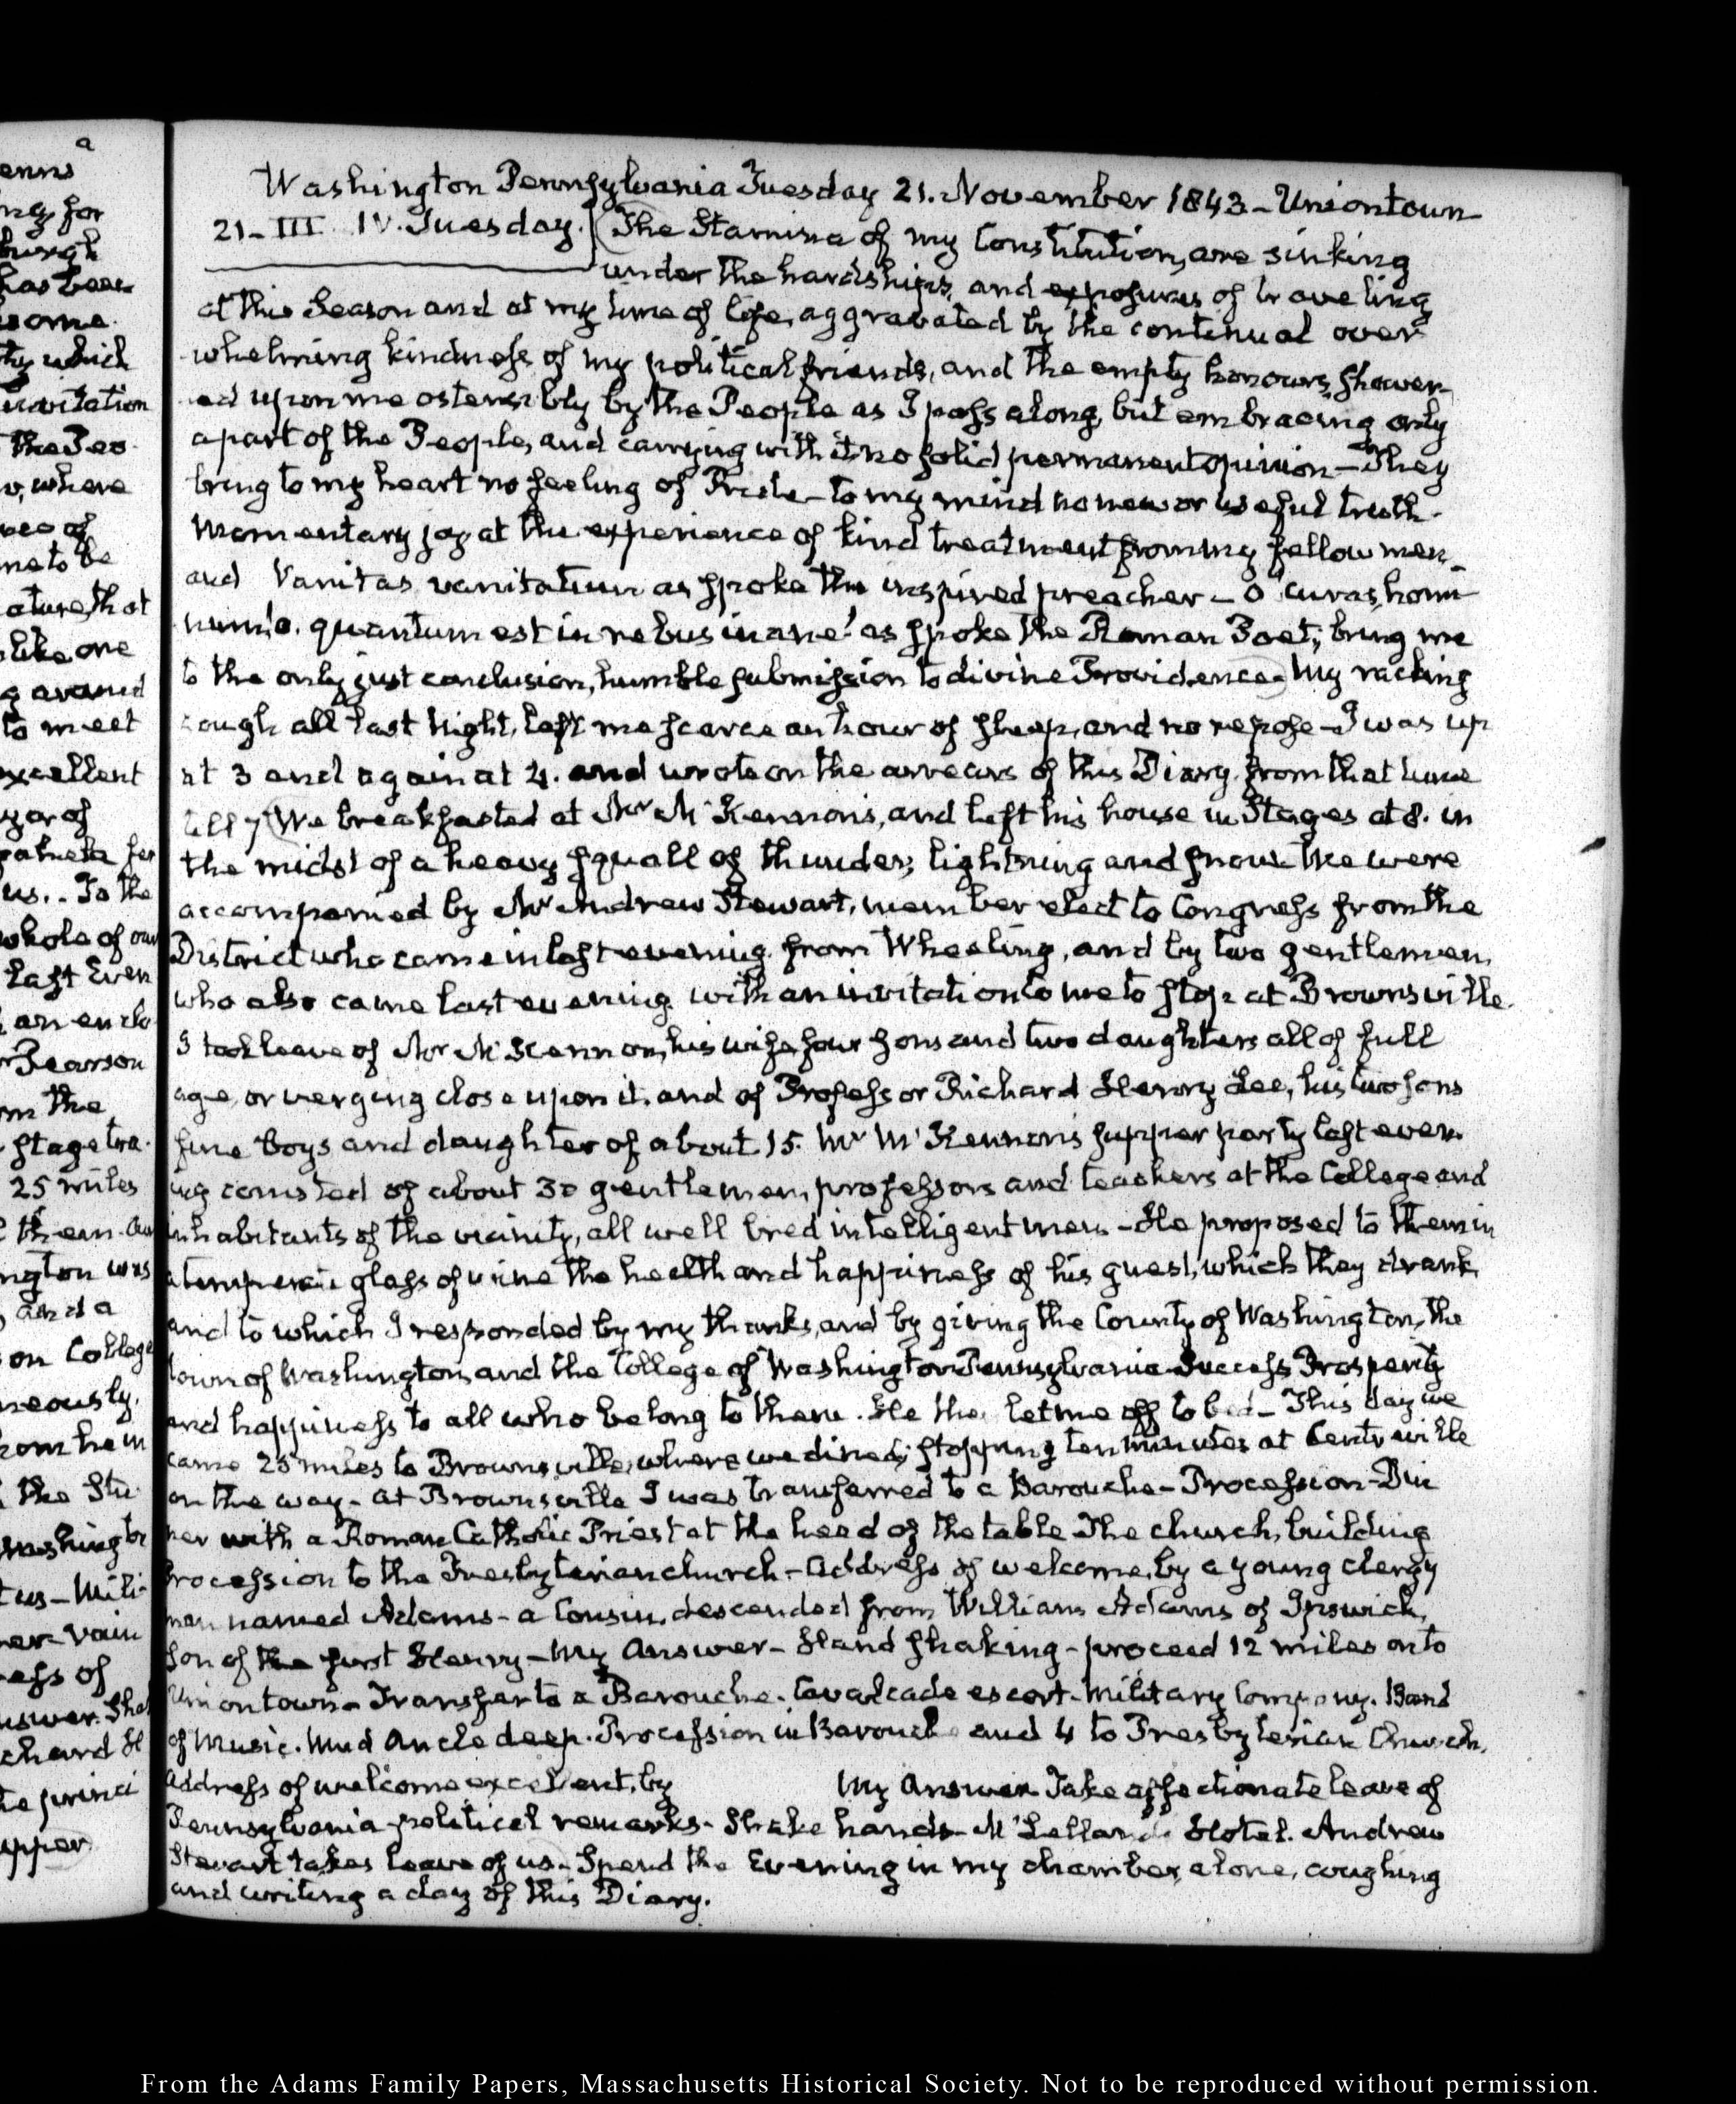 a
enns
ng for
burgh
has been
some
ty which
invitation
the Peo
v, where
ves of
me to be
ature, that
like one
g around
to meet
excellent
yor of
us.. To the
whole of our
last Even
an enclo
Pearson
om the
stage tra
25 miles
them. au
ngton was
and a
on College
neously.
from hem
the Stu
washingto
t us - Mili
ner - Vain
ess of
nswer. Sha
chard H
he princi
upper
Washington Pennsylvania Tuesday 21. November 1843 - Uniontown
21 - III IV. Tuesday. The Stamina of my Constitution, are sinking
under the hardships, and exposures of traveling
at this Season and at my time of life, aggravated by the continual over
whelming kindness of my political friends, and the empty honours, shower
ed upon me ostensibly by the People as I pass along, but embracing only
a part of the People, and carrying with it no solid permanent opinion - They
bring to my heart no feeling of Pride - to my mind no new or useful truth.
Momentary joy at the experience of kind treatment from my fellow men
and Vanitas vanitatum as spoke the inspired preacher - O curas, homi
num! o. quantum est in rebus inane! as spoke the Roman Poet; bring me
to the only just conclusion, humble submission to divine Providence - My racking
cough all last Night, left me scarce an hour of sleep, and no repose - I was up
at 3 and again at 4. and wrote on the arrears of this Diary from that time
till 7 We breakfasted at Mr. McKennon's, and left his house in Stages at 8. in
the midst of a heavy squall of thunder, lightning and snow. We were
accompanied by Mr Andrew Stewart, member elect to Congress from the
District who came in last evening from Wheeling, and by two gentlemen,
who also came last evening with an invitation to me to stop at Brownsville.
I took leave of Mr McKennon, his wife four sons and two daughters all of full
age, or verging close upon it, and of Professor Richard Henry Lee, his two sons
fine boys and daughter of about 15. Mr McKennon's supper party last even
ing consisted of about 30 gentlemen, professors and teachers at the College and
inhabitants of the vicinity, all well bred intelligent men - He proposed to them in
a temperate glass of wine the health and happiness of his guest, which they drank,
and to which I responded by my thanks, and by giving the County of Washington, the
town of Washington, and the College of Washington Pennsylvania Success Prosperity
and happiness to all who belong to them. He then let me off to bed - This day we
came 23 miles to Brownsville, where we dined; stopping ten minutes at Centreville
on the way - at Brownsville I was transferred to a Barouche - Procession - Din
ner with a Roman Catholic Priest at the head of the table The church, building
Procession to the Presbyterian church - Address of welcome, by a young clergy
man named Adams - a Cousin, descended from William Adams of Ipswich,
Son of the first Henry - My Answer - Hand shaking - proceed 12 miles on to
Uniontown - Transfer to a Barouche. Cavalcade escort - Military Company. Band
of Music. Mud Ancle deep. Procession in Barouche and 4 to Presbyterian Church.
Address of welcome excellent, by My Answer Take affectionate leave of
Pennsylvania - political remarks - Shake hands - McLelland's Hotel. Andrew
Stewart takes leave of us. Spend the Evening in my chamber, alone, coughing
and writing a day of this Diary.
From the Adams Family Papers, Massachusetts Historical Society. Not to be reproduced without permission.